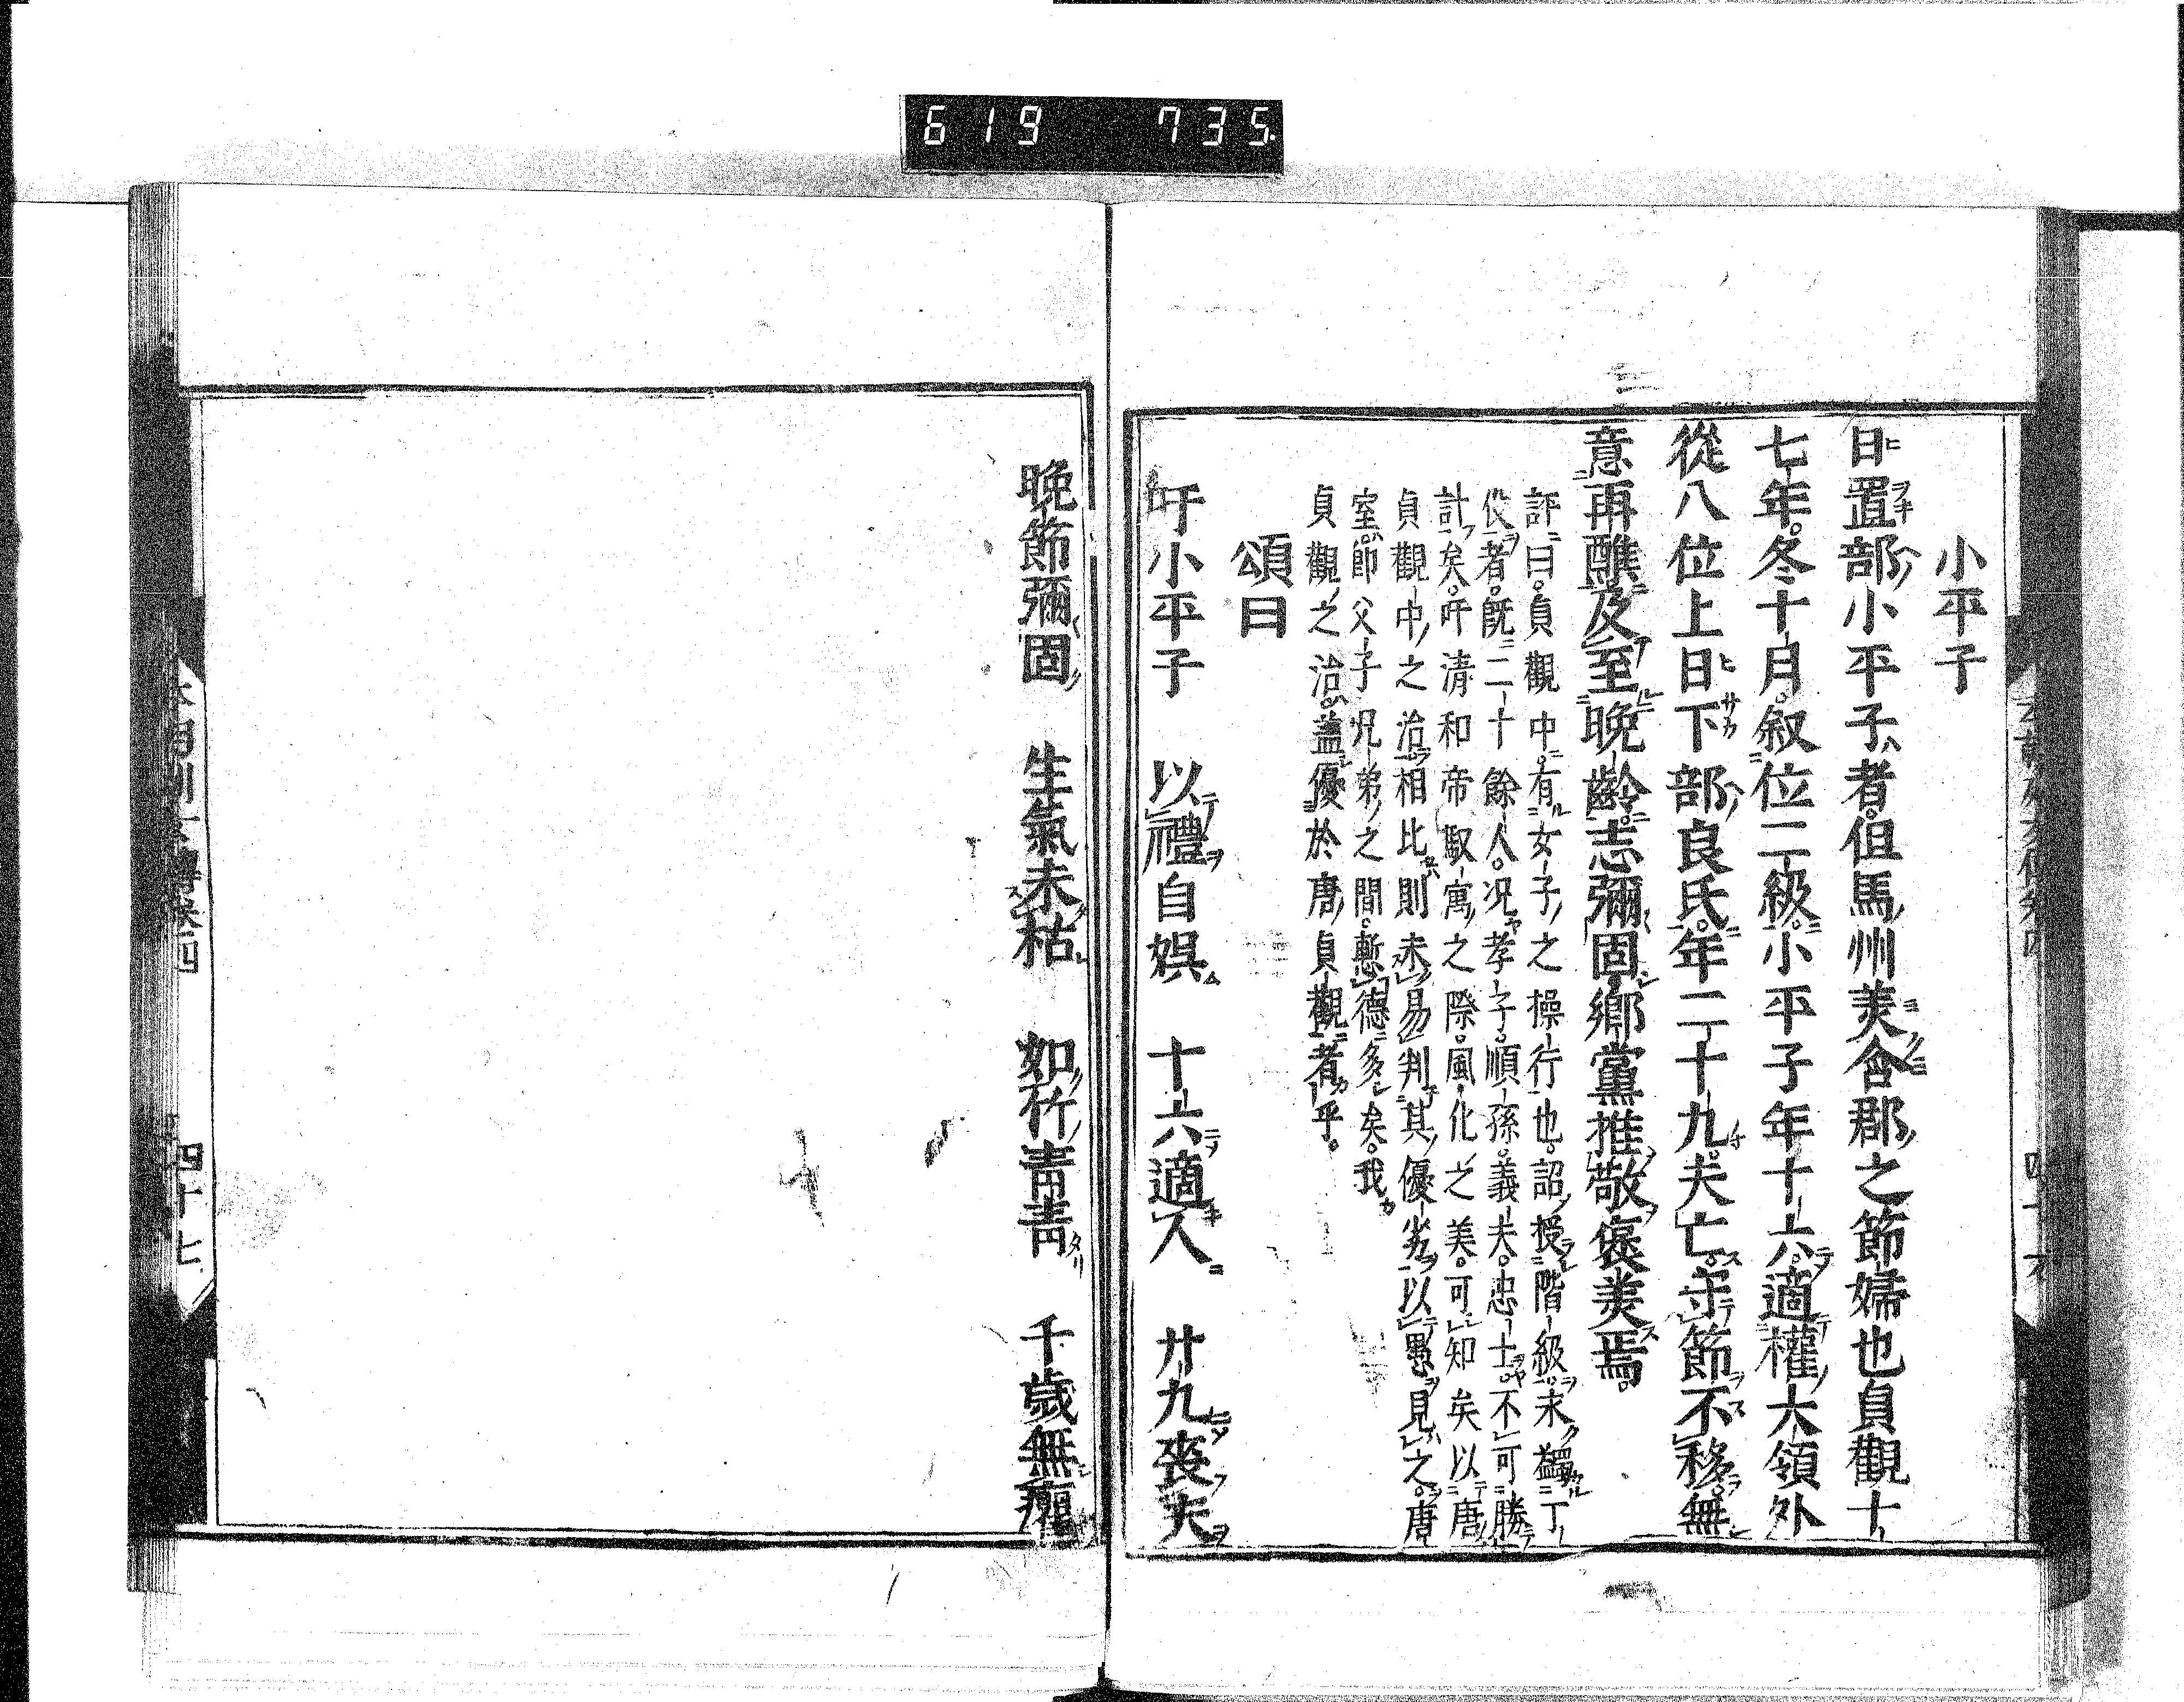 619 735
小平子
日置部小平子者。但馬州美含郡之節婦也貞觀十
七年。冬十月。叙位二級。小平子年十六。適權大領外
從八位上日下部良氏。年二十九。夫亡。守節不移。無
意再醮及至晚齡。志彌固。鄉黨推敬褒美焉。
評曰。貞觀中。有女子之操行也。詔授階級。末蠲丁
役者。既二十餘人。况孝子。順孫。義夫。忠士。不可勝
計矣。吁清和帝馭寓之際。風化之美。可知矣以唐
貞觀中之治相比則未易判其優劣。以愚見之。唐
室。節父子兄弟之間。慙德多矣。我
貞觀之治。蓋優於唐貞觀者乎。
頌曰
吁小平子 以禮自娯 十六適人 廿九喪夫
晚節彌固 生氣未枯 如竹青青 千歲無癯
本朝列女傳卷四 四十七